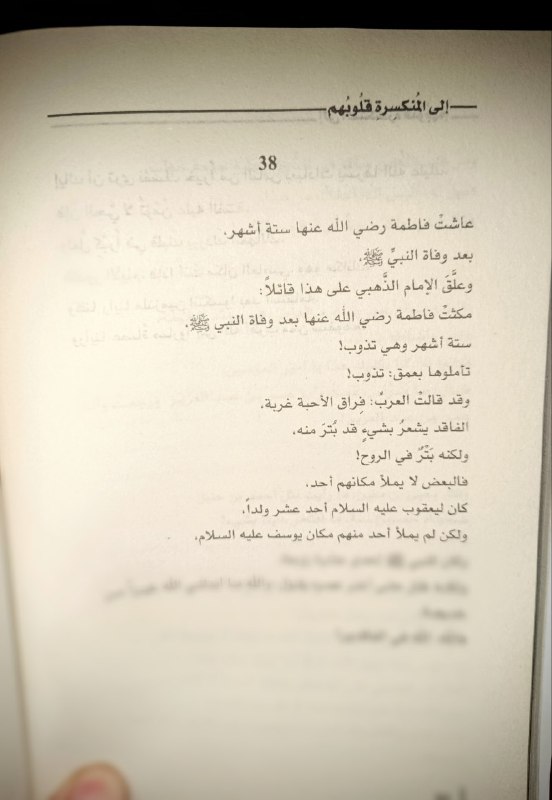 إلى المُنكسِرةِ قلُوبُهم
38
عاشتْ فاطمة رضي الله عنها ستة أشهر،
بعد وفاة النبيِّ ﷺ،
وعلَّقَ الإمام الذَّهبي على هذا قائلاً:
مكثتْ فاطمة رضي الله عنها بعد وفاة النبي ﷺ،
ستة أشهر وهي تذوب!
تأملوها بعمق: تذوب!
وقد قالتْ العربُ: فِراق الأحبة غربة،
الفاقد يشعرُ بشيءٍ قد بُترَ منه،
ولكنه بَتْرٌ في الروح!
فالبعض لا يملأ مكانهم أحد،
كان ليعقوب عليه السلام أحد عشر ولداً،
ولكن لم يملأ أحد منهم مكان يوسف عليه السلام،